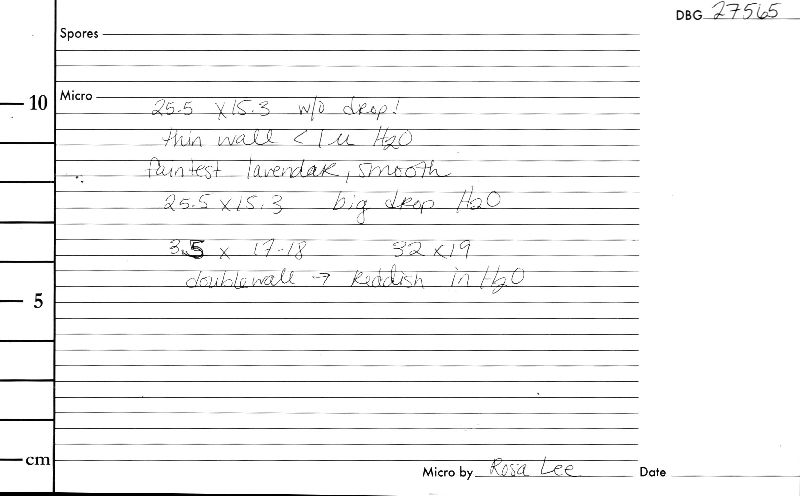 DBG 27565
Spores
10
Micro
25.5 X 15.3 w/o drop!
thin wall < 1 u H2O
faintest lavendar, smooth
25.5 x 15.3 big drop H2O
3.5 x 17-18 32 x 19
doublewall → Reddish in H2O
5
cm
Micro by Rosa Lee Date